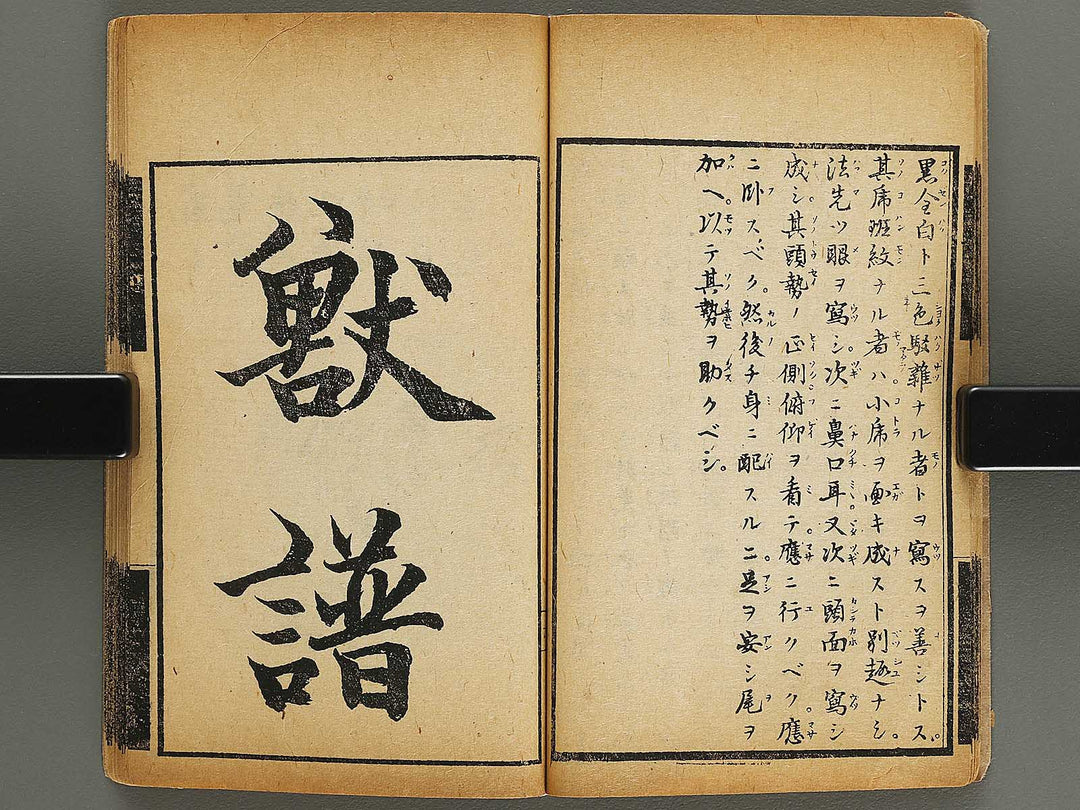 黒全白ト三色駁雜ナル者トヲ寫スヲ善シトス。
其虎斑紋ナル者ハ小虎ヲ画キ成スト別趣ナシ。
法先ツ眼ヲ寫シ次ニ鼻口耳又次ニ頭面ヲ寫シ
成シ其頭勢ノ正側俯仰ヲ看テ應ニ行クベク應
ニ卧スベク。然後チ身ニ配スルニ足ヲ安シ尾ヲ
加ヘ。以テ其勢ヲ助クベシ。
獸譜